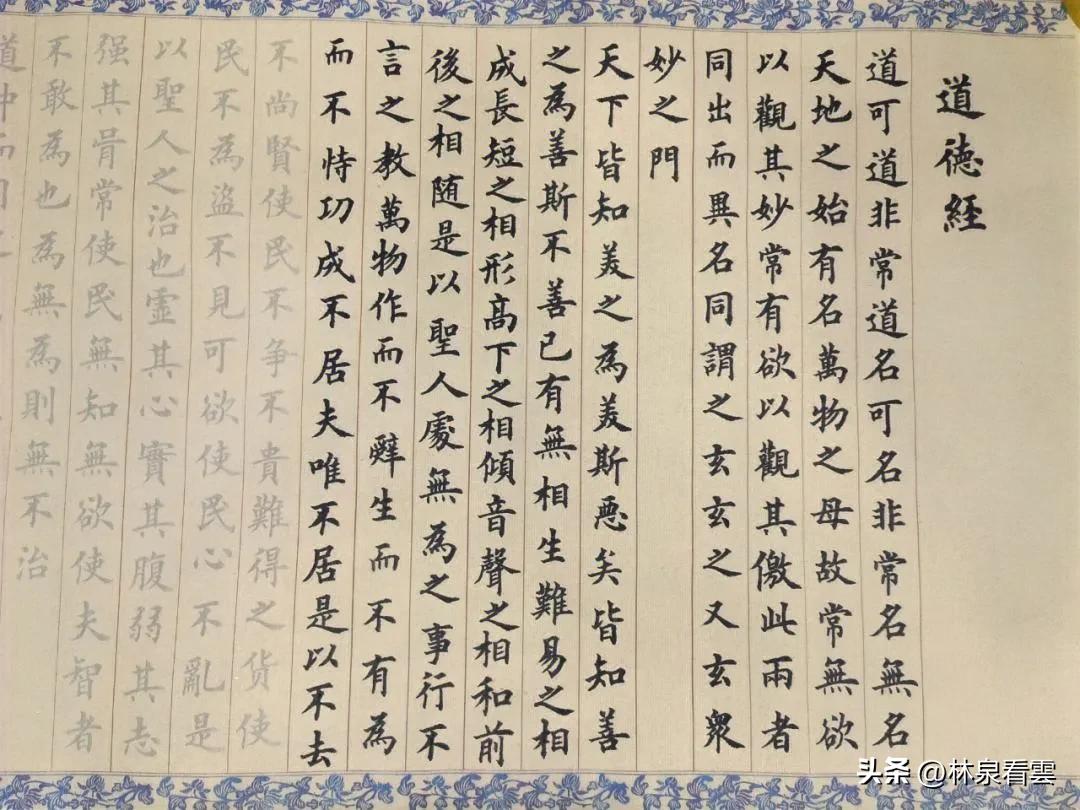 道德經
道可道非常道名可名非常名無名
天地之始有名萬物之母故常無欲
以觀其妙常有欲以觀其儌此兩者
同出而異名同謂之玄玄之又玄衆
妙之門
天下皆知美之為美斯惡矣皆知善
之為善斯不善已有無相生難易之相
成長短之相形高下之相傾音聲之相和前
後之相随是以聖人處無為之事行不
言之教萬物作而不辭生而不有為
而不恃功成不居夫唯不居是以不去
不尚賢使民不争不貴難得之货使
民不為盜不見可欲使民心不亂是
以聖人之治也虛其心實其腹弱其志
强其骨常使民無知無欲使夫智者
不敢為也為無為則無不治
头条 @林泉看雲